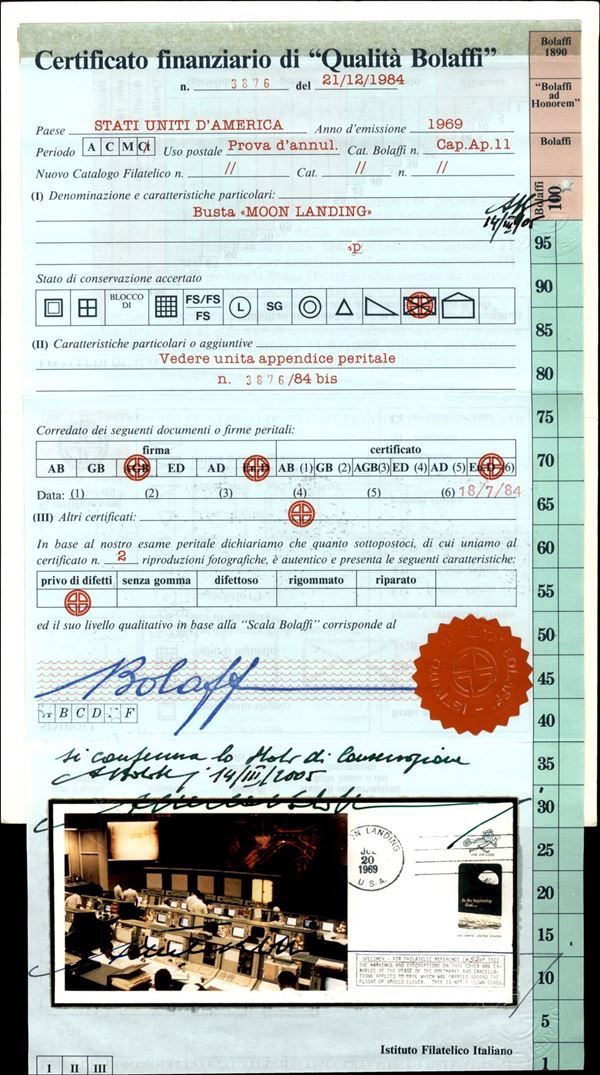 Certificato finanziario di “Qualità Bolaffi”
n. 3876 del 21/12/1984
Bolaffi 1890
“Bolaffi ad Honorem”
Bolaffi
Bolaffi 100
Paese STATI UNITI D'AMERICA Anno d'emissione 1969
Periodo A C M Ct Uso postale Prova d'annul. Cat. Bolaffi n. Cap.Ap.11
Nuovo Catalogo Filatelico n. // Cat. // n. //
(I) Denominazione e caratteristiche particolari:
Busta «MOON LANDING»
14/III/05
95
Stato di conservazione accertato
90
BLOCCO DI FS/FS FS L SG
85
(II) Caratteristiche particolari o aggiuntive
Vedere unita appendice peritale
80
n. 3876/84 bis
75
Corredato dei seguenti documenti o firme peritali:
firma certificato
70
AB GB ED AD AB (1) GB (2) AGB(3) ED (4) AD (5) (6)
Data: (1) (2) (3) (4) (5) (6) 18/7/84
65
(III) Altri certificati:
60
In base al nostro esame peritale dichiariamo che quanto sottopostoci, di cui uniamo al
certificato n. 2 riproduzioni fotografiche, è autentico e presenta le seguenti caratteristiche:
privo di difetti senza gomma difettoso rigommato riparato
55
ed il suo livello qualitativo in base alla “Scala Bolaffi” corrisponde al
50
45
Bolaffi
40
B C D F
si conferma lo stato di conservazione
35
14/III/2005
30
25
LANDING
JUL
20
1969
U.S.A.
In the beginning God...
20
15
SPECIMEN - FOR PHILATELIC REFERENCE
THE MARKINGS AND INSCRIPTIONS ON THIS COVER ARE EX-
AMPLES OF THE USAGE OF THE POSTMARKS AND CANCELLA-
TIONS APPLIED TO MAIL WHICH WAS CARRIED ABOARD THE
FLIGHT OF APOLLO ELEVEN. THIS IS NOT A FLOWN COVER.
10
5
Istituto Filatelico Italiano
I II III
1